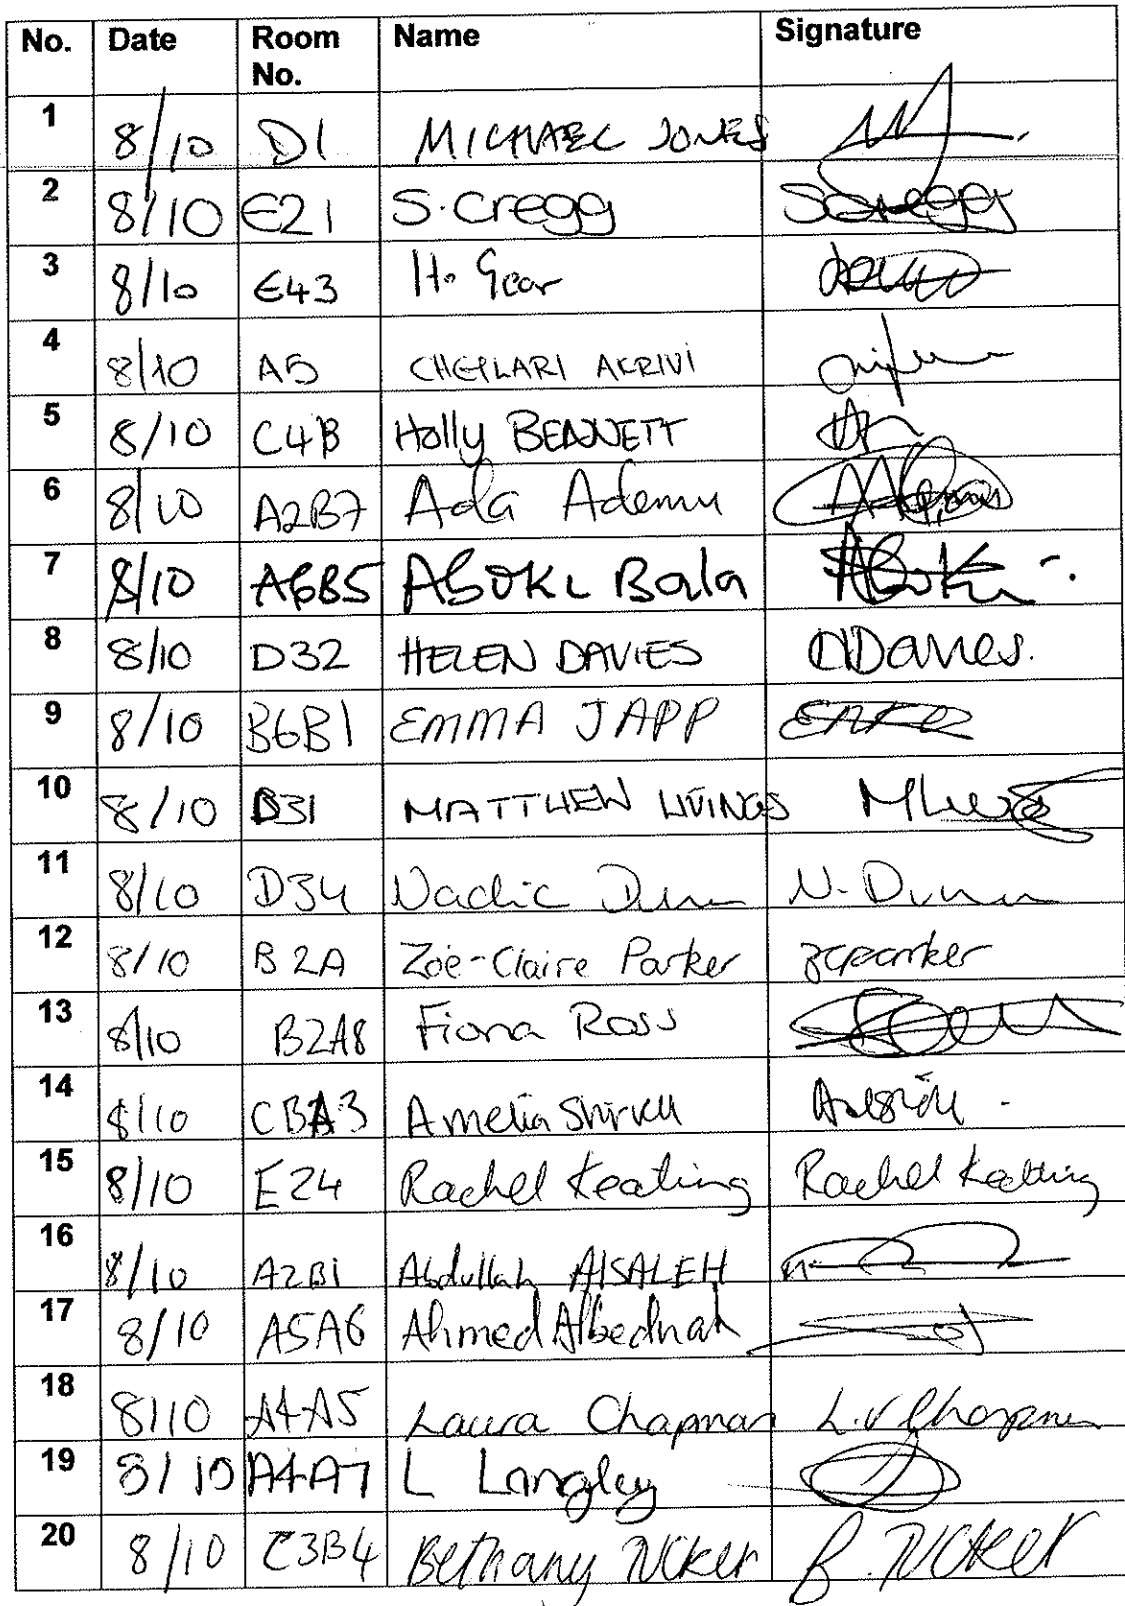 No. Date Room No. Name Signature
1 8/10 D1 MICHAEL JONES
2 8/10 E21 S. Cregg SCregg
3 8/10 E43 H. Gear
4 8/10 A5 AKRIVI
5 8/10 C4B Holly BENNETT
6 8/10 A2B7 Ada Ademu
7 8/10 A6B5 Aboki Bala Aboki
8 8/10 D32 HELEN DAVIES HDavies.
9 8/10 B6B1 EMMA JAPP
10 8/10 D31 MATTHEW LIVINGS
11 8/10 D34 Nadia Dunn N. Dunn
12 8/10 B2A Zoe-Claire Parker zcparker
13 8/10 B2A8 Fiona Ross
14 8/10 Amelia
15 8/10 E24 Rachel Keating Rachel Keating
16 8/10 A2B1 Abdullah AlSALEH
17 8/10 A5A6 Ahmed
18 8/10 A4A5 Laura Chapman L.V Chapman
19 8/10 A4A7 L Langley
20 8/10 C3B4 Bethany Tucker B. Tucker